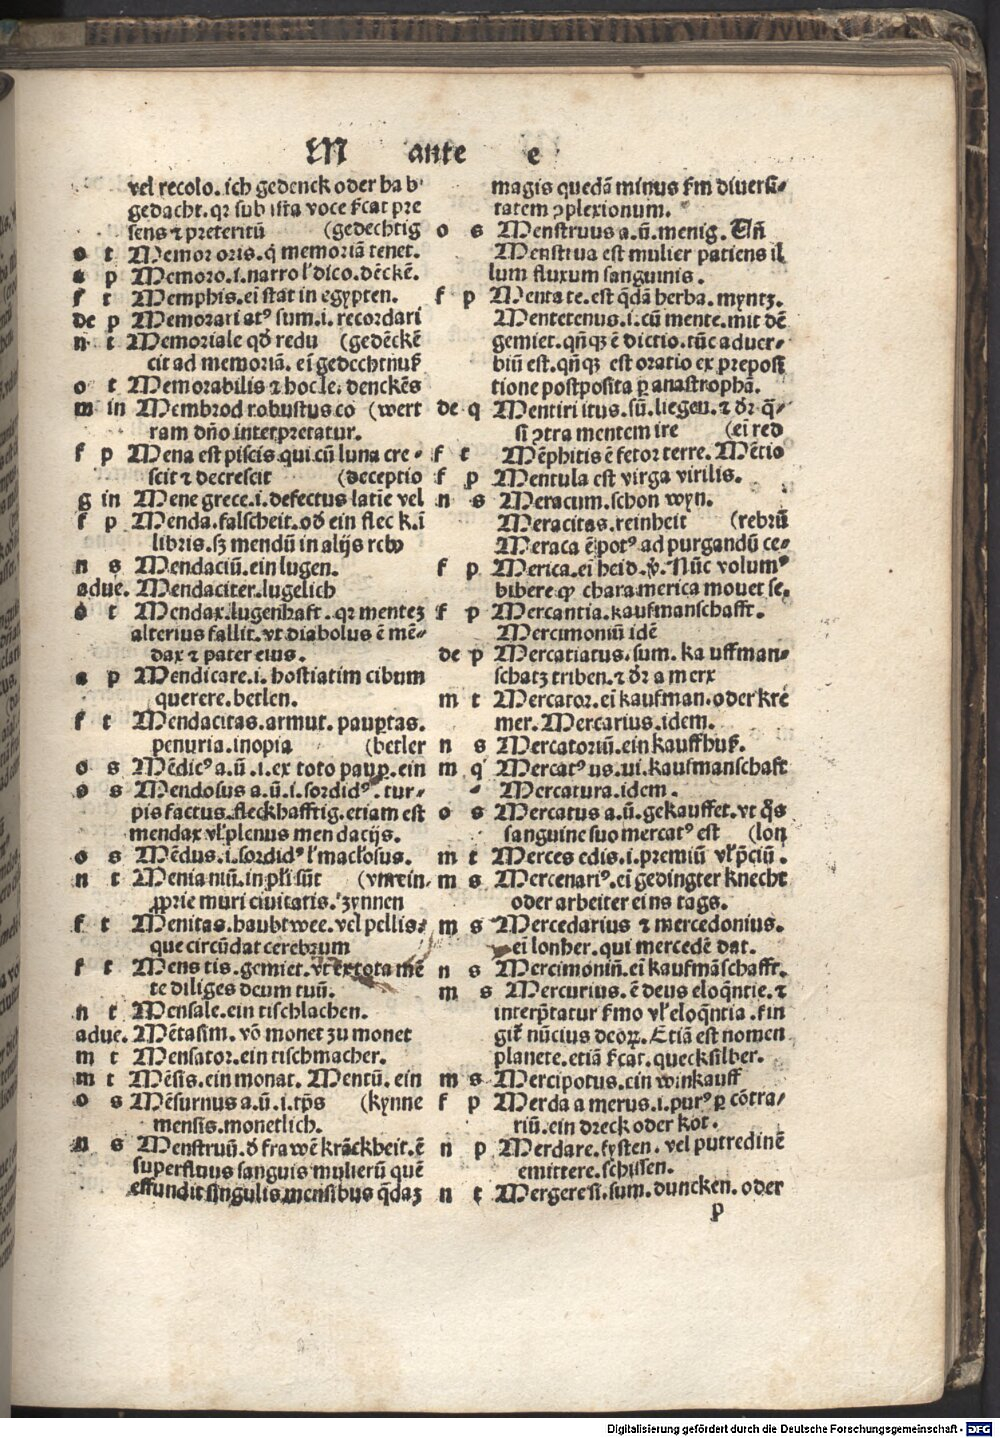 M ante e
vel recolo. ich gedenck oder hab'
gedacht. qꝛ sub ista voce ſ̄cat pre
sens ⁊ preteritū (gedechtig
o t Memor oris. q̄ memoriā tenet.
a p Memoro .i. narro l' dico. dēckē.
f t Memphis. ei stat in egypten.
de p Memorari atꝰ sum .i. recordari
n t Memoriale qđ redu (gedēckē
cit ad memoriā. eī gedechtnuß
o t Memorabilis ⁊ hoc le. denckēs
m in Membrod robustus co (wert
ram dño interpretatur.
f p Mena est piscis qui cū luna cre-
scit ⁊ decrescit (deceptio
g in Mene grece .i. defectus latīe vel
f p Menda. falscheit. od ein fleck. ī
libris. sꝫ mendū in alijs rebꝰ
n s Mendaciū. ein lugen.
adue. Mendaciter. lugelich
o t Mendax. lugenhaft. qꝛ mentez
alterius fallit. vt diabolus ē mē-
dax ⁊ pater eius.
a p Mendicare .i. hostiatim cibum
querere. betlen.
f t Mendacitas. armut. paup̄tas.
penuria. inopia (betler
o s Mēdicꝰ a. ū. .i. ex toto paup̄. ein
o s Mendosus a. ū. i. sordidꝰ. tur-
pis factus. fleckhafftig. etiam est
mendax vl' plenus mendatijs.
o s Mēdus .i. sordidꝰ l' maclosus.
n t Menia niū. in pl'i sūt (vnrein.
ꝓprie muri ciuitatis. zynnen
f t Menitas. haubtwee. vel pellis
que circūdat cerebrum
f t Mens tis. gemiet. vt ex tota mē
te diliges deum tuū.
n t Mensale. ein tischlachen.
adue. Mētasim. vō monet zu monet
m t Mensator. ein tischmacher.
m t Mēsis. ein monat. Mentū. ein
o s Mēsurnus a. ū. i. tp̄s (kynne
mensis. monetlich.
n s Menstruū. đ frawē krāckheit. ē
superfluus sanguis mulierū quē
effundit singulis mensibus q̄daz
magis quedā minus ſm diuersi-
tatem ↄplexionum.
o s Menstruus a. ū. menig. Vn̄
Menstrua est mulier patiens il
lum fluxum sanguinis.
f p Menta te. est q̄dā herba. myntz.
Mentetenus .i. cū mente. mit dē
gemiet. qn̄qꝫ ē dictio. tūc aduer-
biū est. qn̄qꝫ est oratio ex preposi
tione postposita ꝑ anastrophā.
de q Mentiri itus. sū. liegen. ⁊ dr̄ q̄-
si ↄtra mentem ire (ei red
f t Mēphitis ē fetor terre. Mētio
f p Mentula est virga virilis.
n s Meracum. schon wyn.
Meracitas. reinheit (rebrū
Meraca ē potꝰ ad purgandū ce-
f p Merica. ei heid. ꝟ. Nūc volumꝰ
bibere qꝫ chara merica mouet se.
f p Mercantia. kaufmanschafft.
Mercimoniū idē
de p Mercatiatus. sum. kauffman-
schatz triben. ⁊ dr̄ a merx
m t Mercator. eī kaufman. oder kre
mer. Mercarius. idem.
n s Mercatoriū. ein kauffhuß.
m q Mercatꝰ us. ui. kaufmanschaft
Mercatura. idem.
o s Mercatus a. ū. gekauffet. vt q̄s
sanguine suo mercatꝰ est (lon
m t Merces edis .i. premiū vl' p̄ciū.
m s Mercenariꝰ. eī gedingter knecht
oder arbeiter eins tags.
m s Mercedarius ⁊ mercedonius.
eī lonher. qui mercedē dat.
n s Mercimoniū. eī kaufmāschafft.
m s Mercurius. ē deus eloq̄ntie. ⁊
interp̄tatur ſmo vl' eloq̄ntia. ſin
git̄ nūcius deoꝝ. Etiā est nomen
planete. etiā ſ̄cat. quecksilber.
m s Mercipotus. ein winkauff
f p Merda a merus .i. purꝰ ꝑ cōtra-
riū. ein dreck oder kot.
n p Merdare. fysten. vel putredinē
emittere. schissen.
n t Mergere si. sum. duncken. oder
p
Digitalisierung gefördert durch die Deutsche Forschungsgemeinschaft - DFG